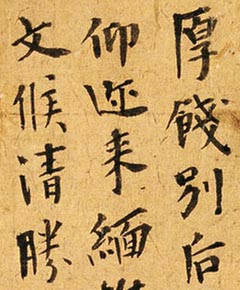 厚餞別后
仰迩来緬
文候清勝